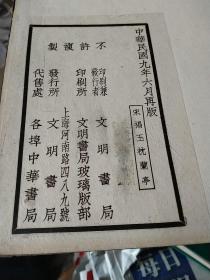 中華民國九年六月再版
宋搨玉枕蘭亭
不許複製
印刷兼發行者 文明書局
印刷所 文明書局玻璃版部
上海河南路四八九號
發行所 文明書局
代售處 各埠中華書局